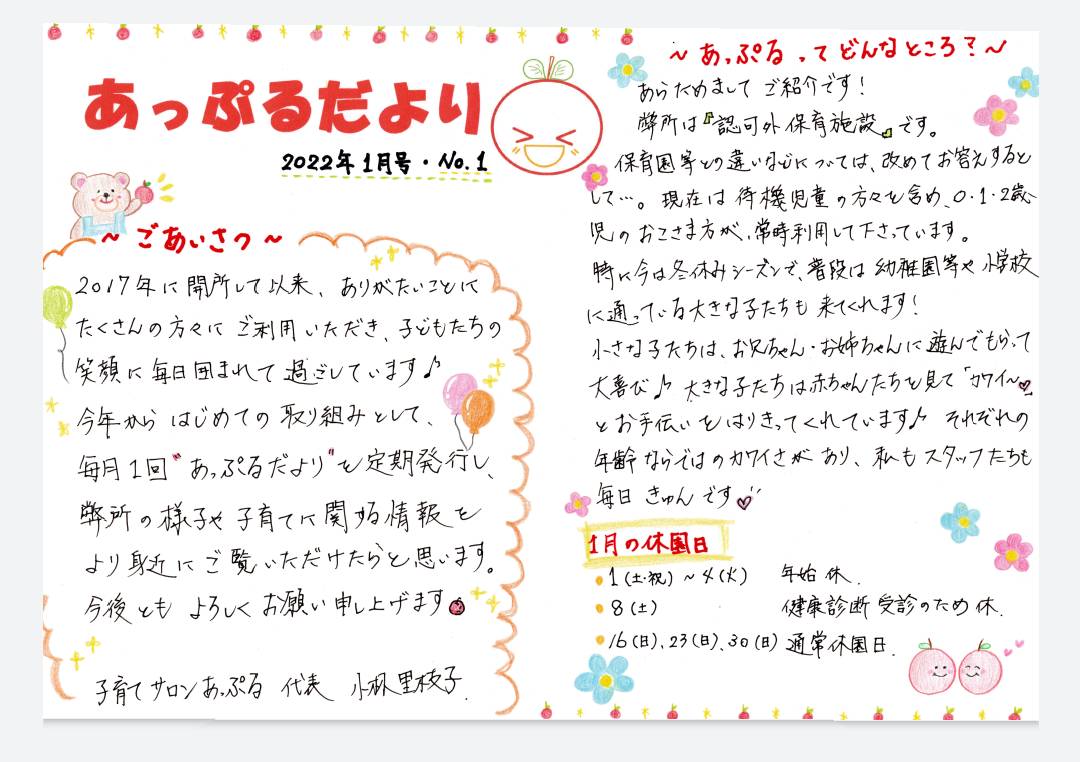 あっぷるだより
2022年1月号・No.1
~ごあいさつ~
2017年に開所して以来、ありがたいことに
たくさんの方々にご利用いただき、子どもたちの
笑顔に毎日囲まれて過ごしています♪
今年からはじめての取り組みとして、
毎月1回"あっぷるだより"を定期発行し、
弊所の様子や子育てに関する情報を
より身近にご覧いただけたらと思います。
今後ともよろしくお願い申し上げます
子育てサロンあっぷる 代表 小林里枝子.
~あっぷるってどんなところ?~
あらためましてご紹介です!
弊所は『認可外保育施設』です。
保育園等との違いなどについては、改めてお答えすると
して…。現在は待機児童の方々を含め、0・1・2歳
児のお子さま方が、常時利用して下さっています。
時に今は冬休みシーズンで、普段は幼稚園等や小学校
に通っている大きな子たちも来てくれます!
小さな子たちは、お兄ちゃん・お姉ちゃんに遊んでもらって
大喜び♪ 大きな子たちは赤ちゃんたちを見て「カワイ~♡
とお手伝いをはりきってくれています♪ それぞれの
年齢ならではのカワイさがあり、私もスタッフたちも
毎日きゅんです♡
1月の休園日
・1(土・祝)~4(火) 年始休.
・8(土) 健康診断受診のため休.
・16(日)、23(日)、30(日) 通常休園日.